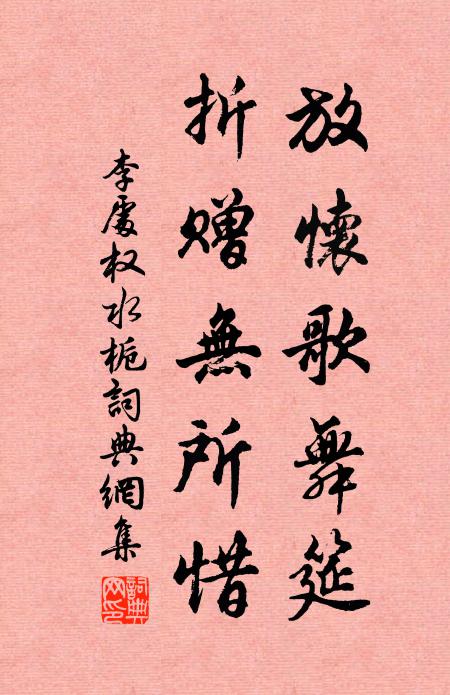 放懷歌舞筵
折贈無所惜
李處权水栀詞典網集
詞典网印